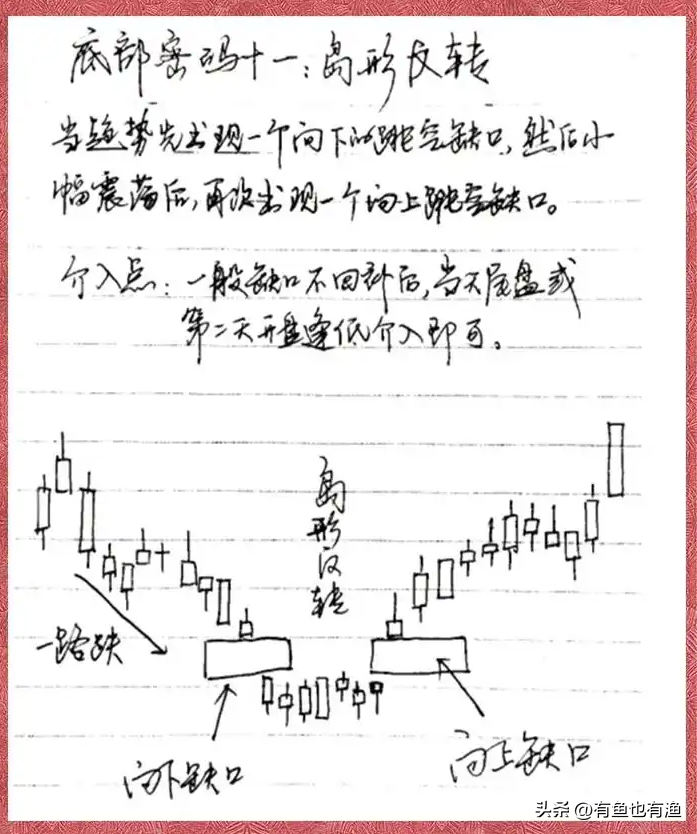 底部密码十一：岛形反转
当趋势先出现一个向下的跳空缺口，然后小
幅震荡后，再次出现一个向上跳空缺口。
介入点：一般缺口不回补后，当天尾盘或
第二天开盘逢低介入即可。
岛形反转
一路跌
向下缺口
向上缺口
头条 @有鱼也有渔